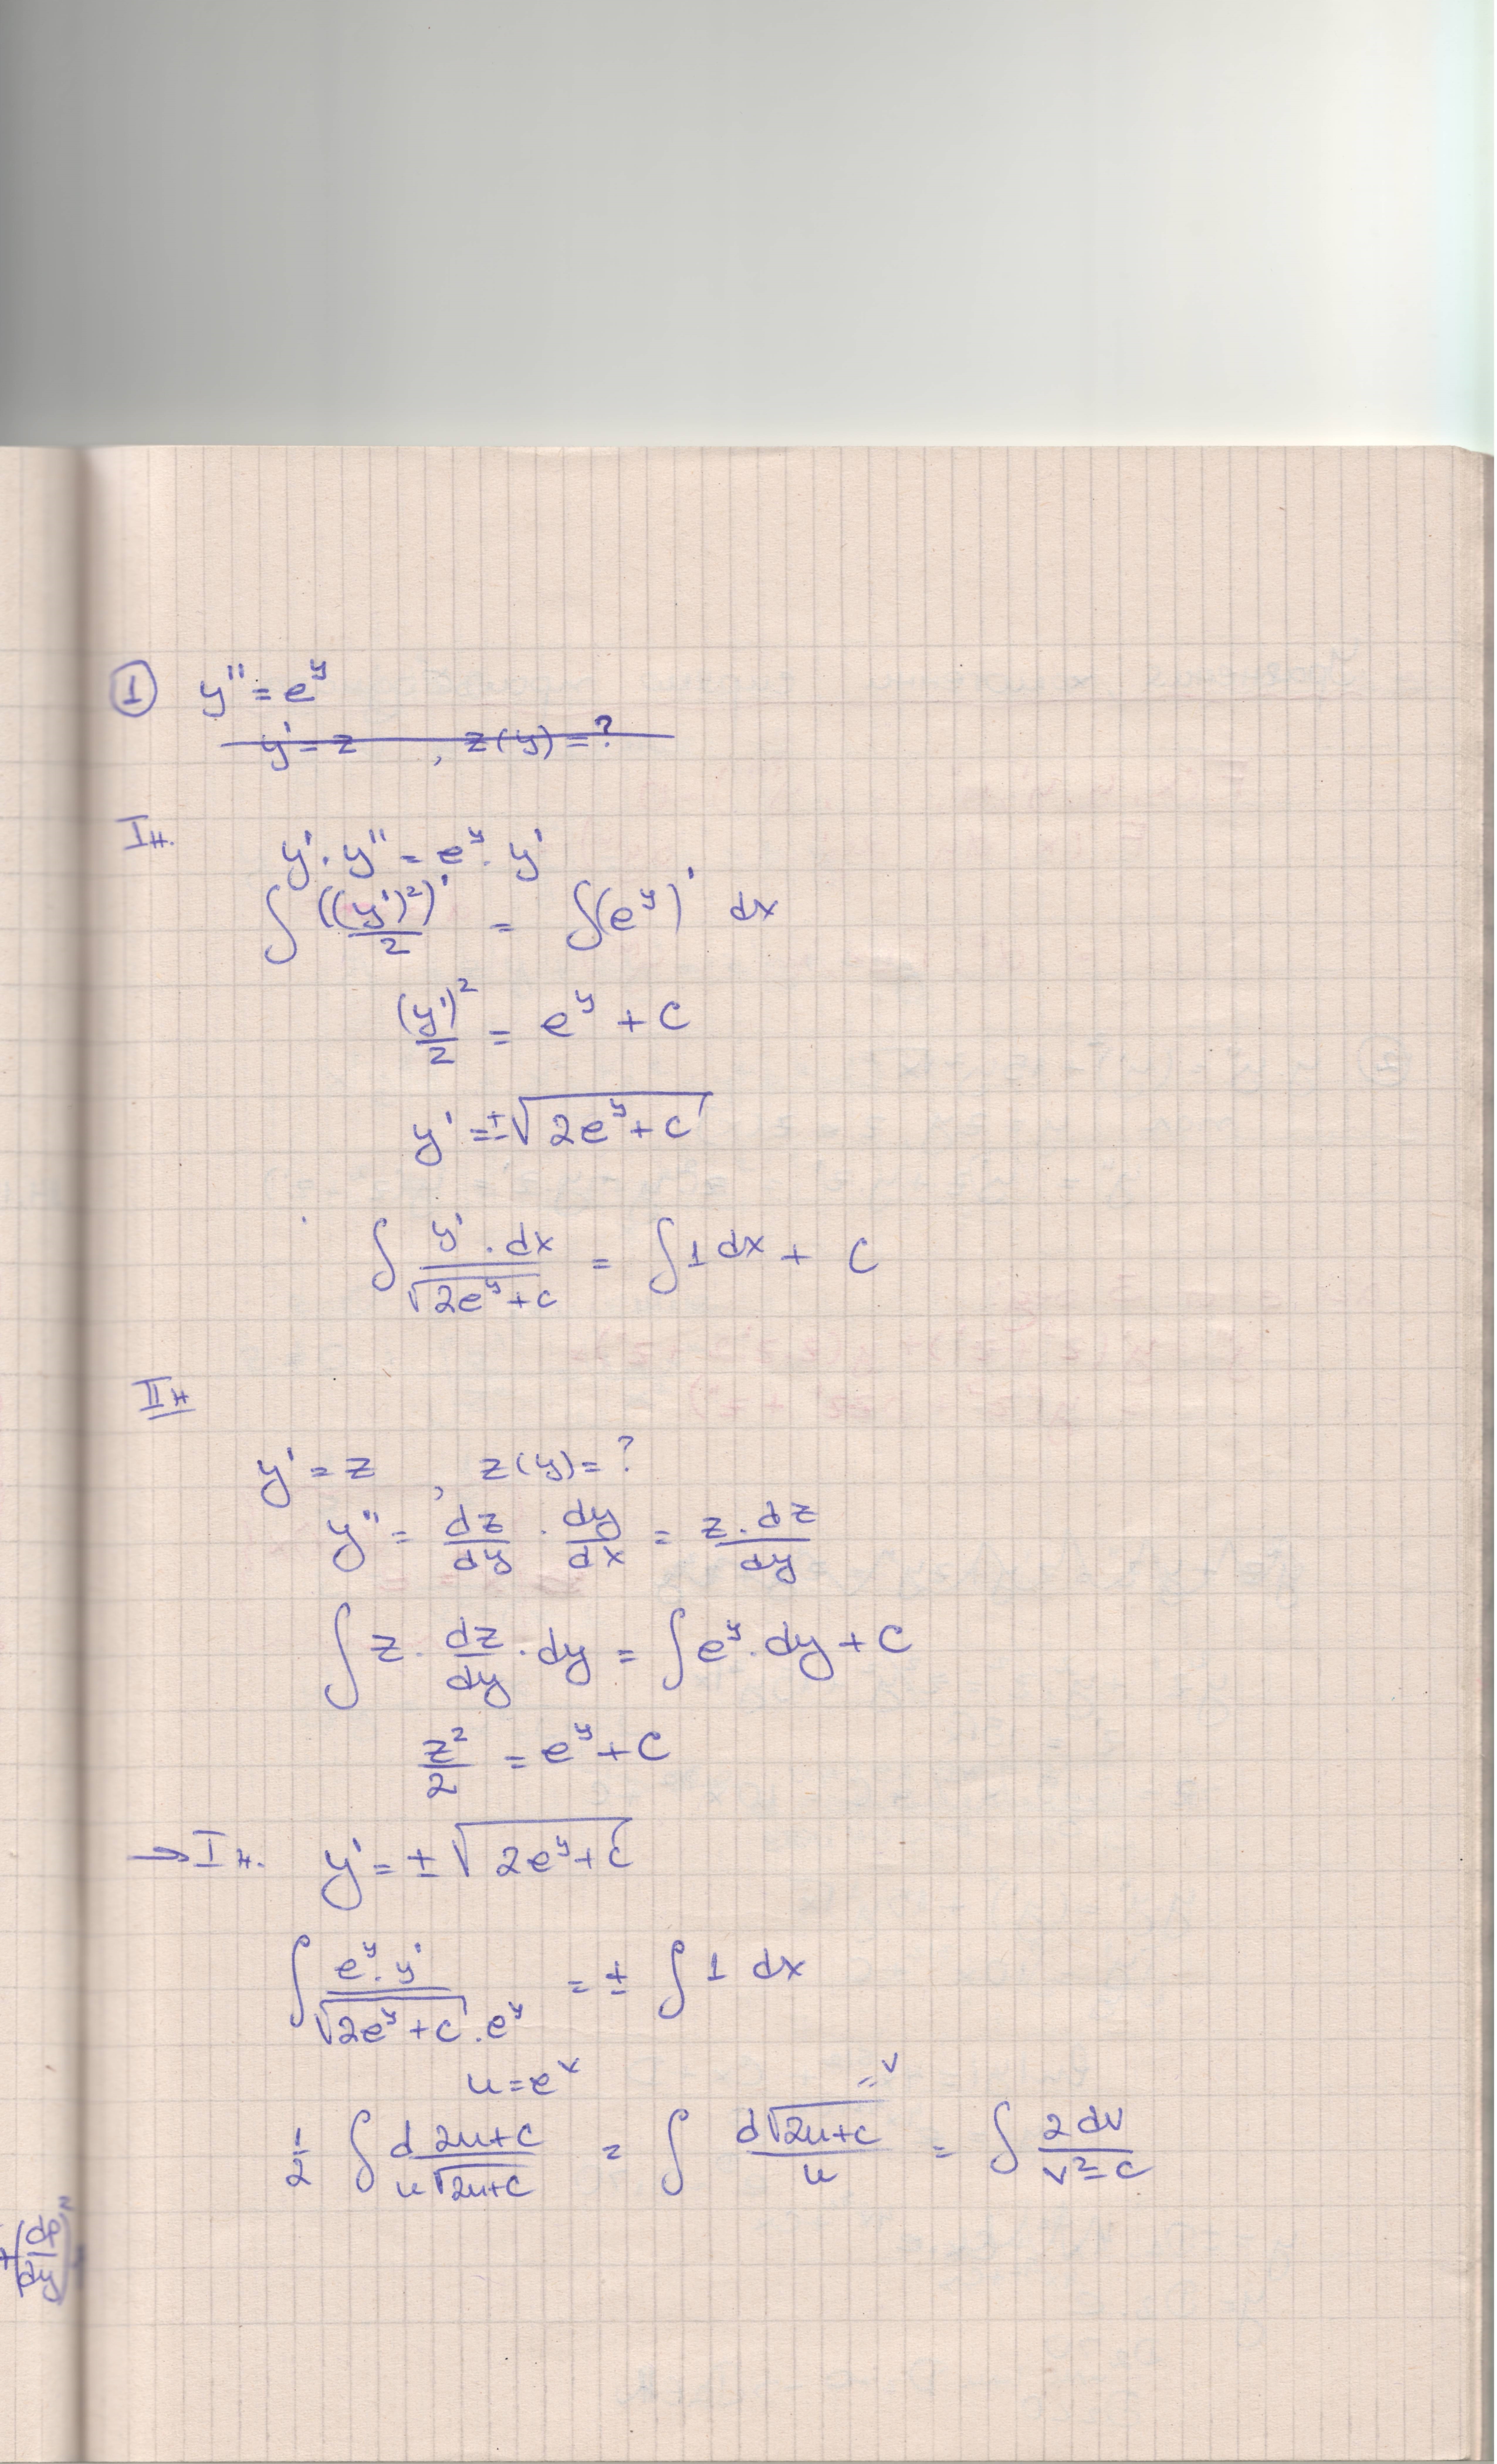 ① y'' = e^y
y' = z , z(y) = ?
I н.
y' . y'' = e^y . y'
∫ ((y')²/2)' = ∫(e^y)' dx
(y')²/2 = e^y + c
y' = ±√(2e^y + c)
∫ y' . dx / √(2e^y + c) = ∫ 1 dx + c
II н
y' = z , z(y) = ?
y'' = dz/dy . dy/dx = z . dz/dy
∫ z . dz/dy . dy = ∫ e^y . dy + c
z²/2 = e^y + c
→ I н. y' = ±√(2e^y + c)
∫ e^y . y' / √(2e^y + c) . e^y = ± ∫ 1 dx
u = e^x = v
1/2 ∫ d 2u+c / u√(2u+c) = ∫ d√(2u+c) / u = ∫ 2 dv / v² - c